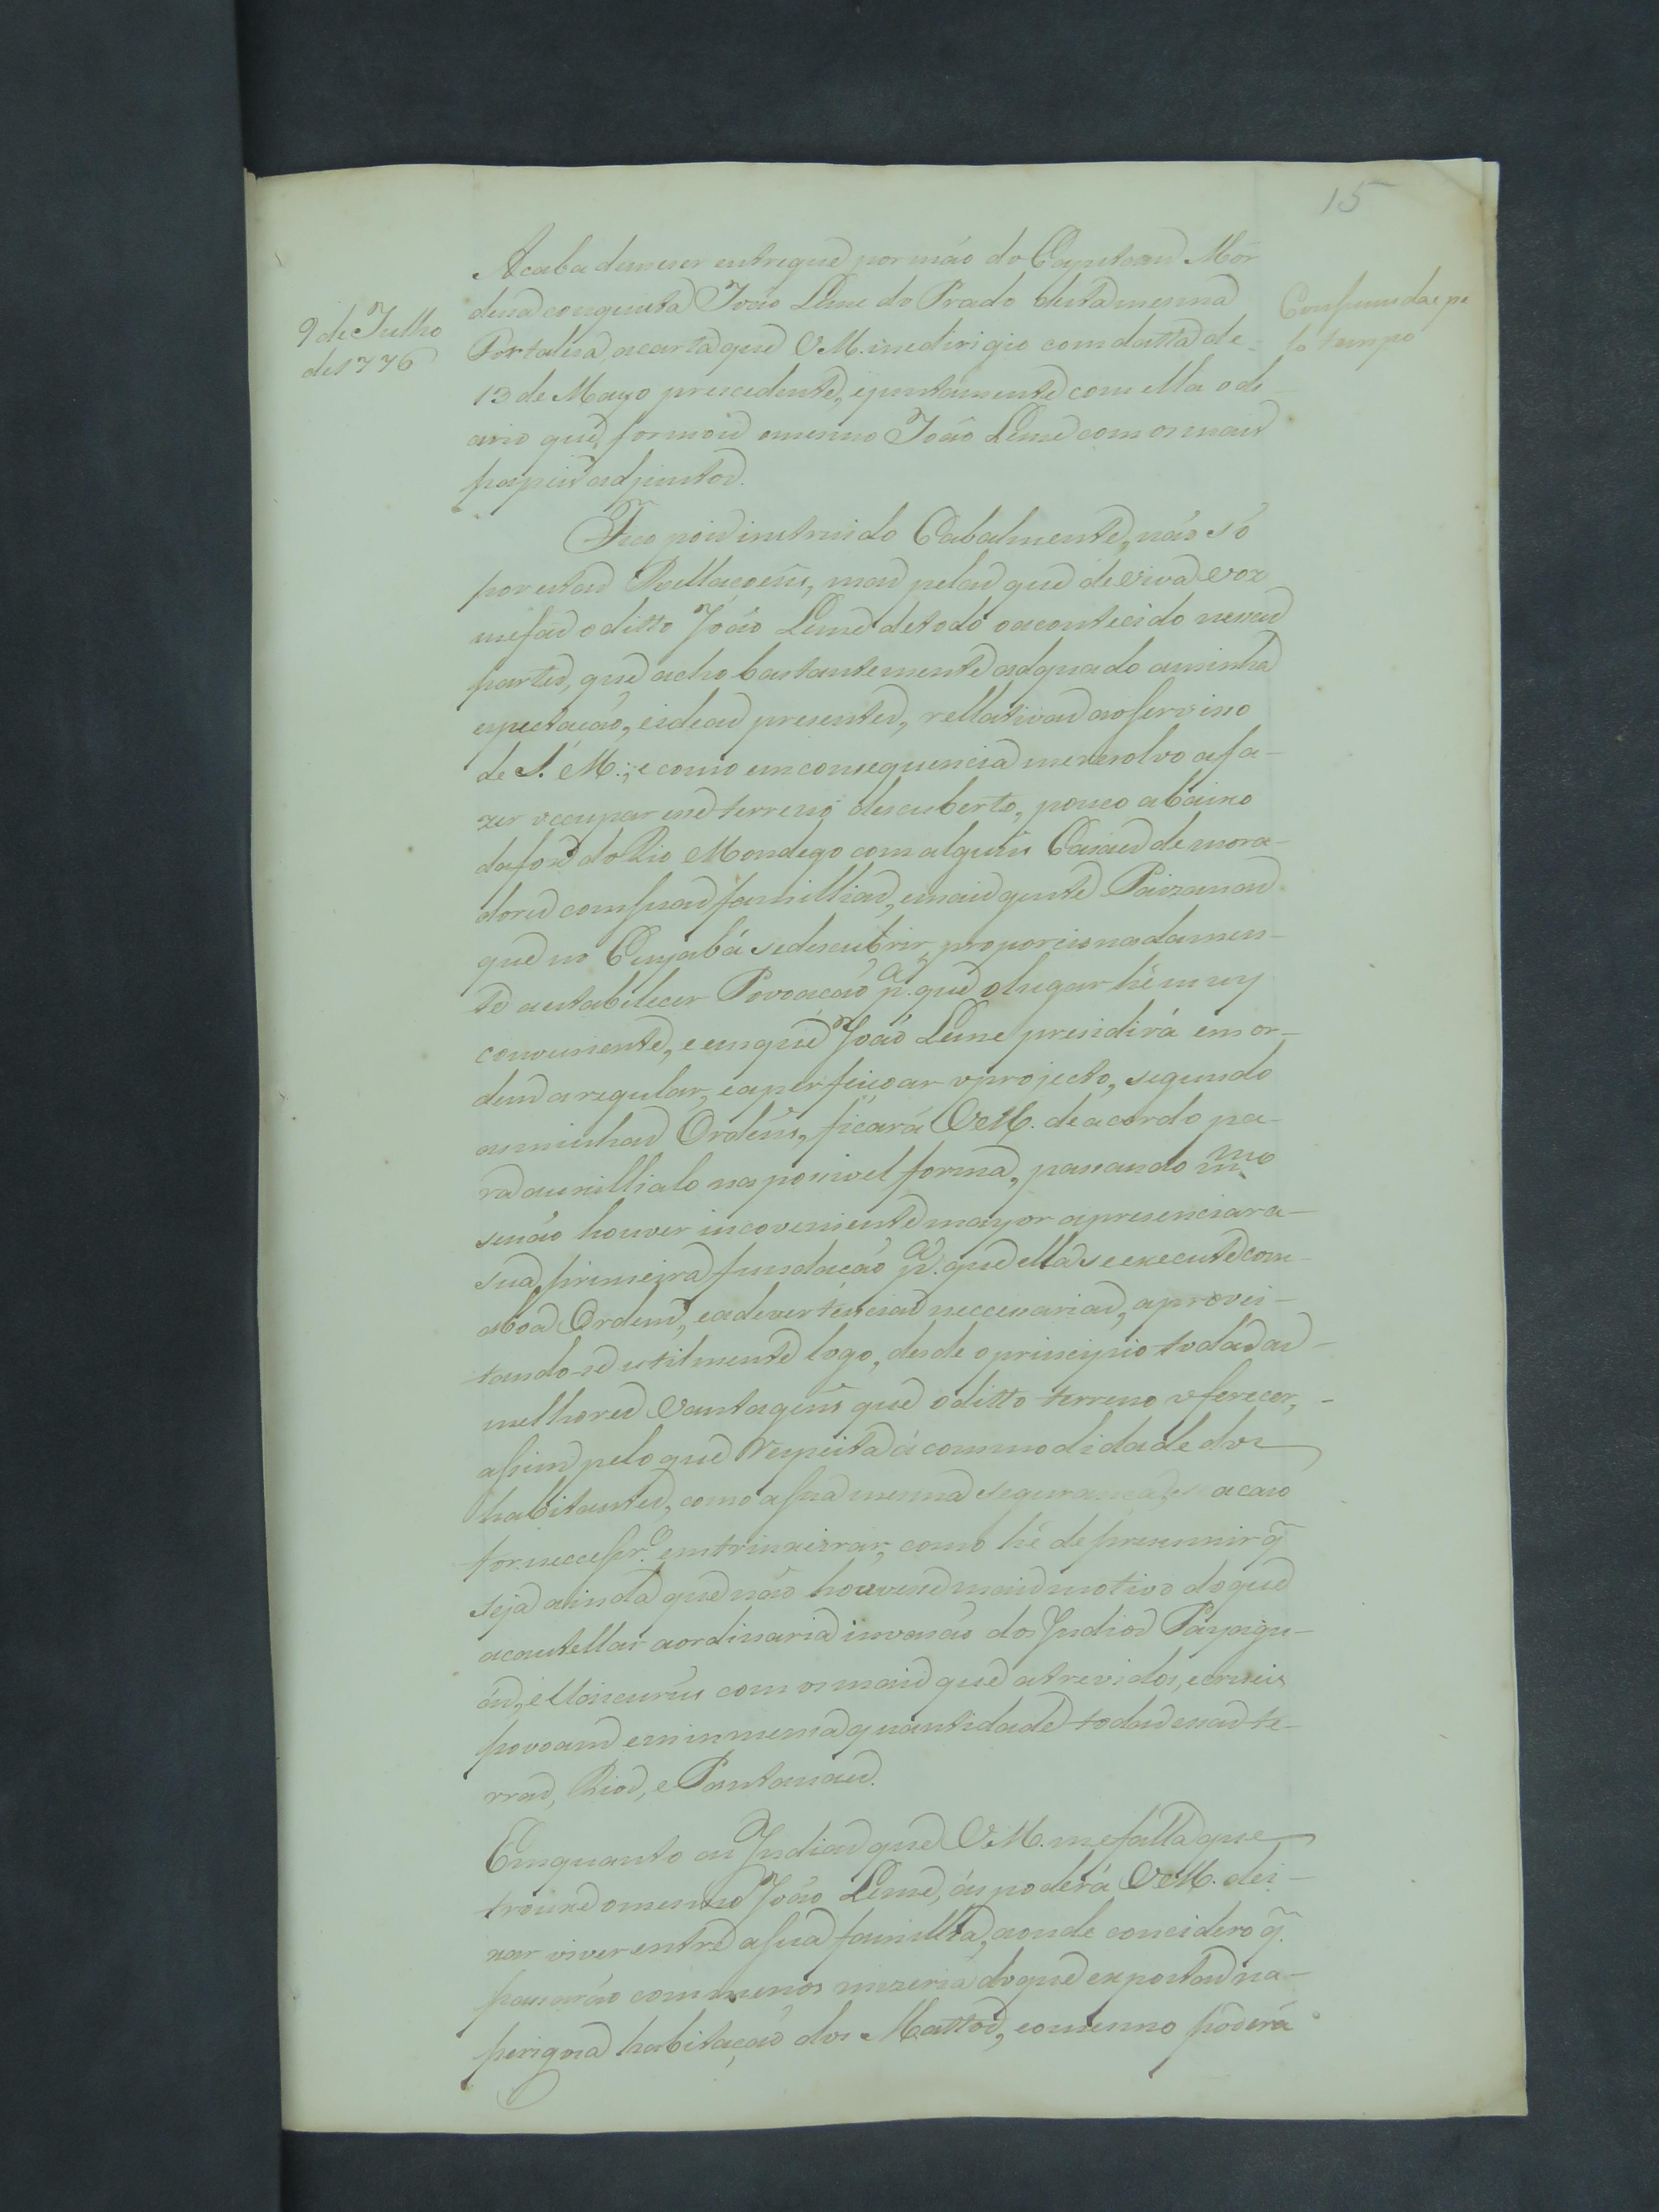 15
9 de Julho
de 1776
Consumida pe
lo tempo
Acaba demeser entregue por mão do Capitam Mór
dessa conquista João Leme do Prado desta mesma
Fortaleza, acarta que VM. medirigio com datta de
13 de Mayo prescedente, ejuntamente com ella o de
ario que formou omesmo João Leme com os mais
papeis adjuntos.
Fico pois instruido Cabalmente, não só
por estas Rellaçoens, mas pelas que de viva voz
mefas oditto João Leme detodo oacontecido nessas
partes, que acho bastantemente adquado aminha
espectação, eideas presentes, rellativas aoserviso
de S. M.; e como emconsequencia meresolvo afa-
zer occupar esse terreno descuberto, pouco abaixo
dafos do Rio Mondego com alguns Casaes de mora-
dores comsuas famillias, emais gente Paizanas
que no Cuyabá sedescubrir, proporcionadamen-
te aestabelecer Povoacão p.ª que olugar hé muy
conveniente, e emque João Leme presidirá em or-
dem aregular, eaperfeiçoar oprojecto, segundo
asminhas Ordens, ficará VM. deacordo pa-
ra auxillialo naposivel forma, passando mmo
senão houver incoveniente mayor apresenciar a-
sua primeira fundação p.ª que ella se execute com-
aboa Ordem, eadevertencias neccesarias, aprovei-
tando-se utilmente logo, desde oprincipio todas as-
melhores Vantagens que oditto terreno oferecer,
assim pelo que Respeita á commodidade dos
habitantes, como asua mesma segurança, se acaso
for neccessr.º emtrinxeirar, como hé de presumir q̃
seja ainda que não houvesse mais motivo do que
acautellar aordinaria invasão dos Indios Payagu-
ás, eUaicurús com os mais que atrevidos, ecrueis
povoam emimmensa quantidade todas essas te-
rras, Rios, e Pantanaes.
Emquanto as Indias que VM. mefalla que
trouxe omesmo João Leme, ás poderá VM. dei-
xar viver entre asua famillia, aonde concidero q̃
passarão com menos mizeria doque expostas na-
perigoza habitação dos Mattos, eomesmo poderá